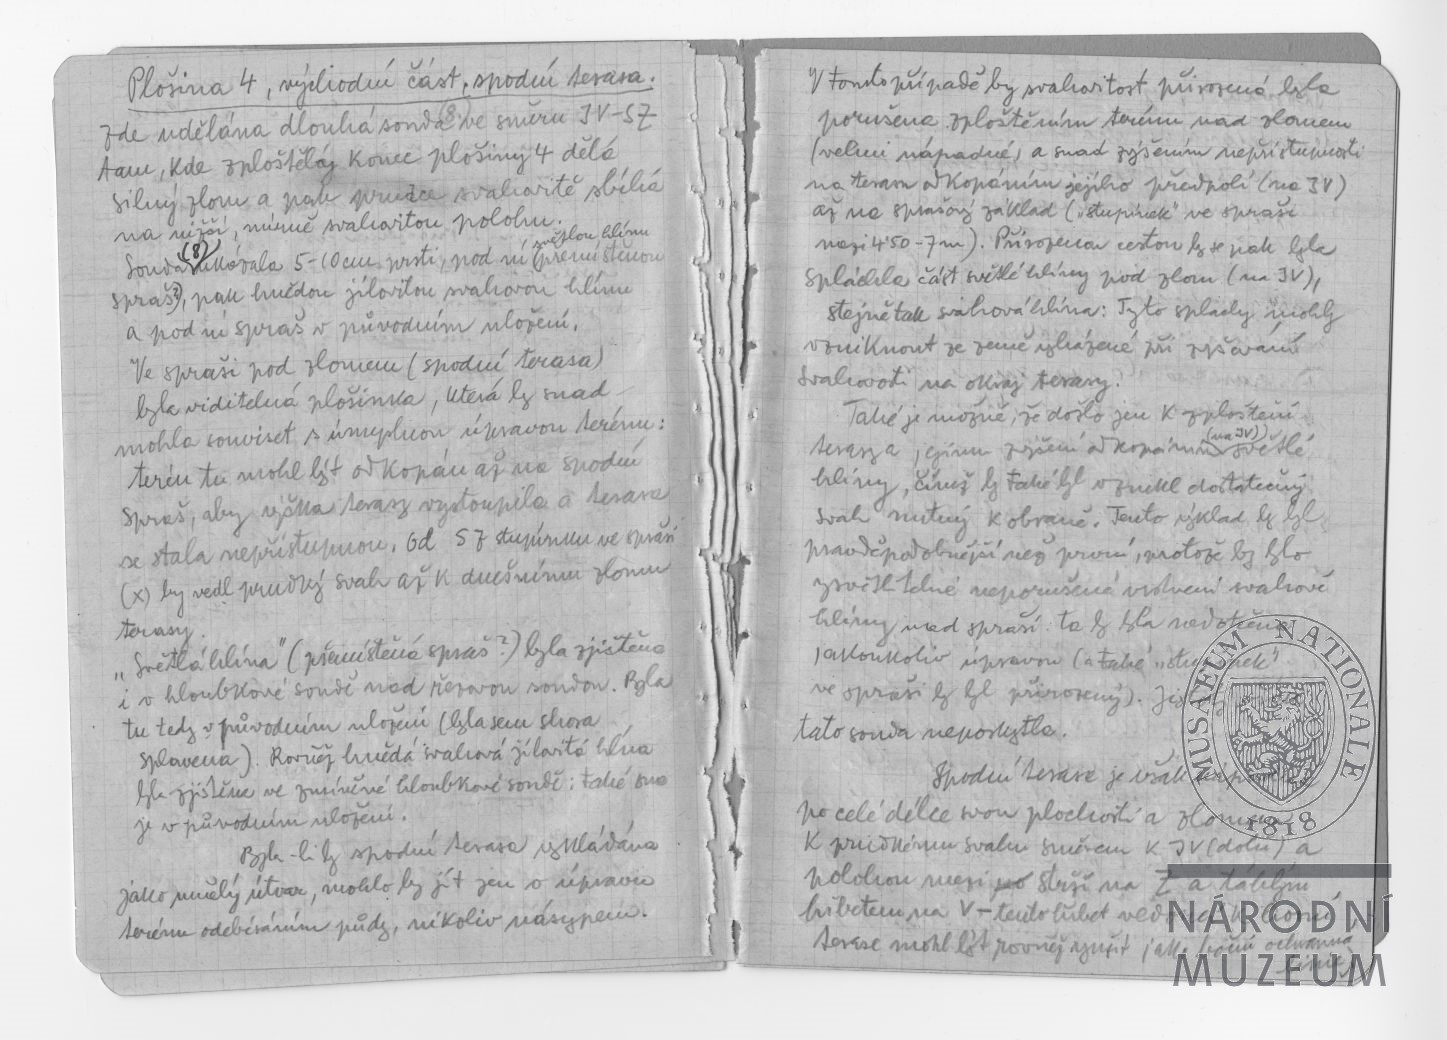 Plošina 4, východní část, spodní terasa.
Zde udělána dlouhá sonda (8) ve směru JV-SZ
tam, kde zploštělý konec plošiny 4 dělá
silný zlom a pak prudce svahovitě sbíhá
na nižší, mírně svahovitou polohu.
světlou hlínu
Sonda (8) ukázala 5-10 cm prsti, pod ní (přemístěnou
spraš?), pak hnědou jílovitou svahovou hlínu
a pod ní spraš v původním uložení.
Ve spraši pod zlomem (spodní terasa)
byla viditelná plošinka, která by snad
mohla souviset s úmyslnou úpravou terénu:
terén tu mohl být odkopán až na spodní
spraš, aby výška terasy vystoupila a terasa
se stala nepřístupnou. Od SZ stupínku ve spraši
(x) by vedl prudký svah až k dnešnímu zlomu
terasy.
„Světlá hlína" (přemístěná spraš?) byla zjištěna
i v hloubkové sondě nad řezovou sondou. Byla
tu tedy v původním uložení (byla sem shora
splavena). Rovněž hnědá svahová jílovitá hlína
byla zjištěna ve zmíněné hloubkové sondě; také ona
je v původním uložení.
Byla-li by spodní terasa vykládána
jako umělý útvar, mohlo by jít jen o úpravu
terénu odebíráním půdy, nikoliv násypem.
V tomto případě by svahovitost přirozená byla
porušena zploštěním terénu nad zlomem
(velmi nápadné) a snad zvýšením nepřístupnosti
na terasu odkopáním jejího předpolí (na JV)
až na sprašový základ („stupínek" ve spraši
mezi 4'50-7 m). Přirozenou cestou by se pak byla
splachla část světlé hlíny pod zlom (na JV),
stejně tak svahová hlína: Tyto splachy mohly
vzniknout ze země vyházené při zvyšování
svahovosti na okraji terasy.
Také je možné, že došlo jen k zploštění
(na JV)
terasy a jejímu zvýšení odkopáním světlé
hlíny, čímž by také byl vznikl dostatečný
svah nutný k obraně. Tento výklad by byl
pravděpodobnější než první, protože by bylo
vysvětlitelné neporušené vrstvení svahové
hlíny nad spraší: ta by byla nedotčena
jakoukoliv úpravou (a také „stupínek"
ve spraši by byl přirozený).
tato sonda neposkytla.
Spodní terasa je však
po celé délce svou plochostí a zlomem
k prudkému svahu směrem k JV (dolů) a
polohou mezi strží na Z a táhlým
hřbetem na V - tento hřbet
terase mohl být rovněž využit jako boční ochranná
linie.
MUSAEUM NATIONALE
1818
NÁRODNÍ
MUZEUM